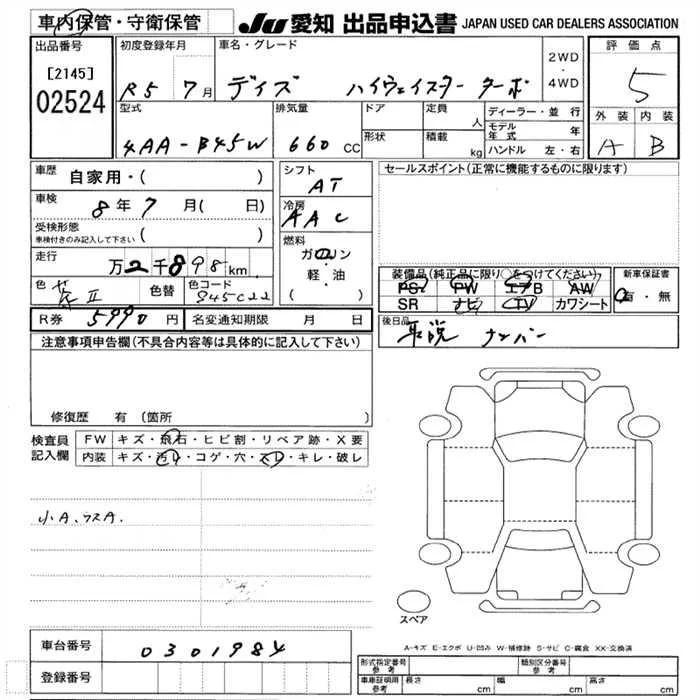 車内保管・守衛保管
JU 愛知 出品申込書 JAPAN USED CAR DEALERS ASSOCIATION
出品番号
[2145]
02524
初度登録年月
R5 7月
車名・グレード
デイズ ハイウェイスター ターボ
2WD
・
4WD
評価点
5
外装 内装
A B
型式
4AA-B45W
排気量
660 CC
ドア
形状
定員 人
積載 kg
ディーラー・並行
モデル年式 年
ハンドル 左・右
車歴 自家用・( )
車検 8年7月( 日)
受検形態
車検付きのみ記入して下さい ( )
走行 万2千898km
色 II
色替
色コード
R券 5990円
名変通知期限 月 日
シフト
AT
冷房
AAC
燃料
ガソリン
・
軽・油
( )
セールスポイント(正常に機能するものに限ります)
装備品(純正品に限り○をつけてください)
PS PW エアB AW
SR ナビ TV カワシート
新車保証書
有・無
後日品
取説 ナンバー
注意事項申告欄(不具合内容等は具体的に記入して下さい)
修復歴 有(箇所
検査員
記入欄
FW キズ・飛石・ヒビ割・リペア跡・X要
内装 キズ・汚レ・コゲ・穴・スレ・キレ・破レ
小A、ウスA.
スペア
A-キズ E-エクボ U-凹み W-補修跡 S-サビ C-腐食 XX-交換済
車台番号 0301984
登録番号
形式指定番号
参考
類別区分番号
参考
車庫証明用
参考
長さ cm 幅 cm 高さ cm